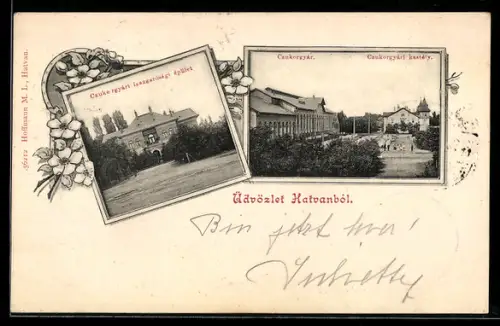 Czukorgyári igazgatósági épület
Czukorgyár.
Czukorgyári kastély.
Hoffmann M. L., Hatvan.
Üdvözlet Hatvanból.
Bin jetzt hier!